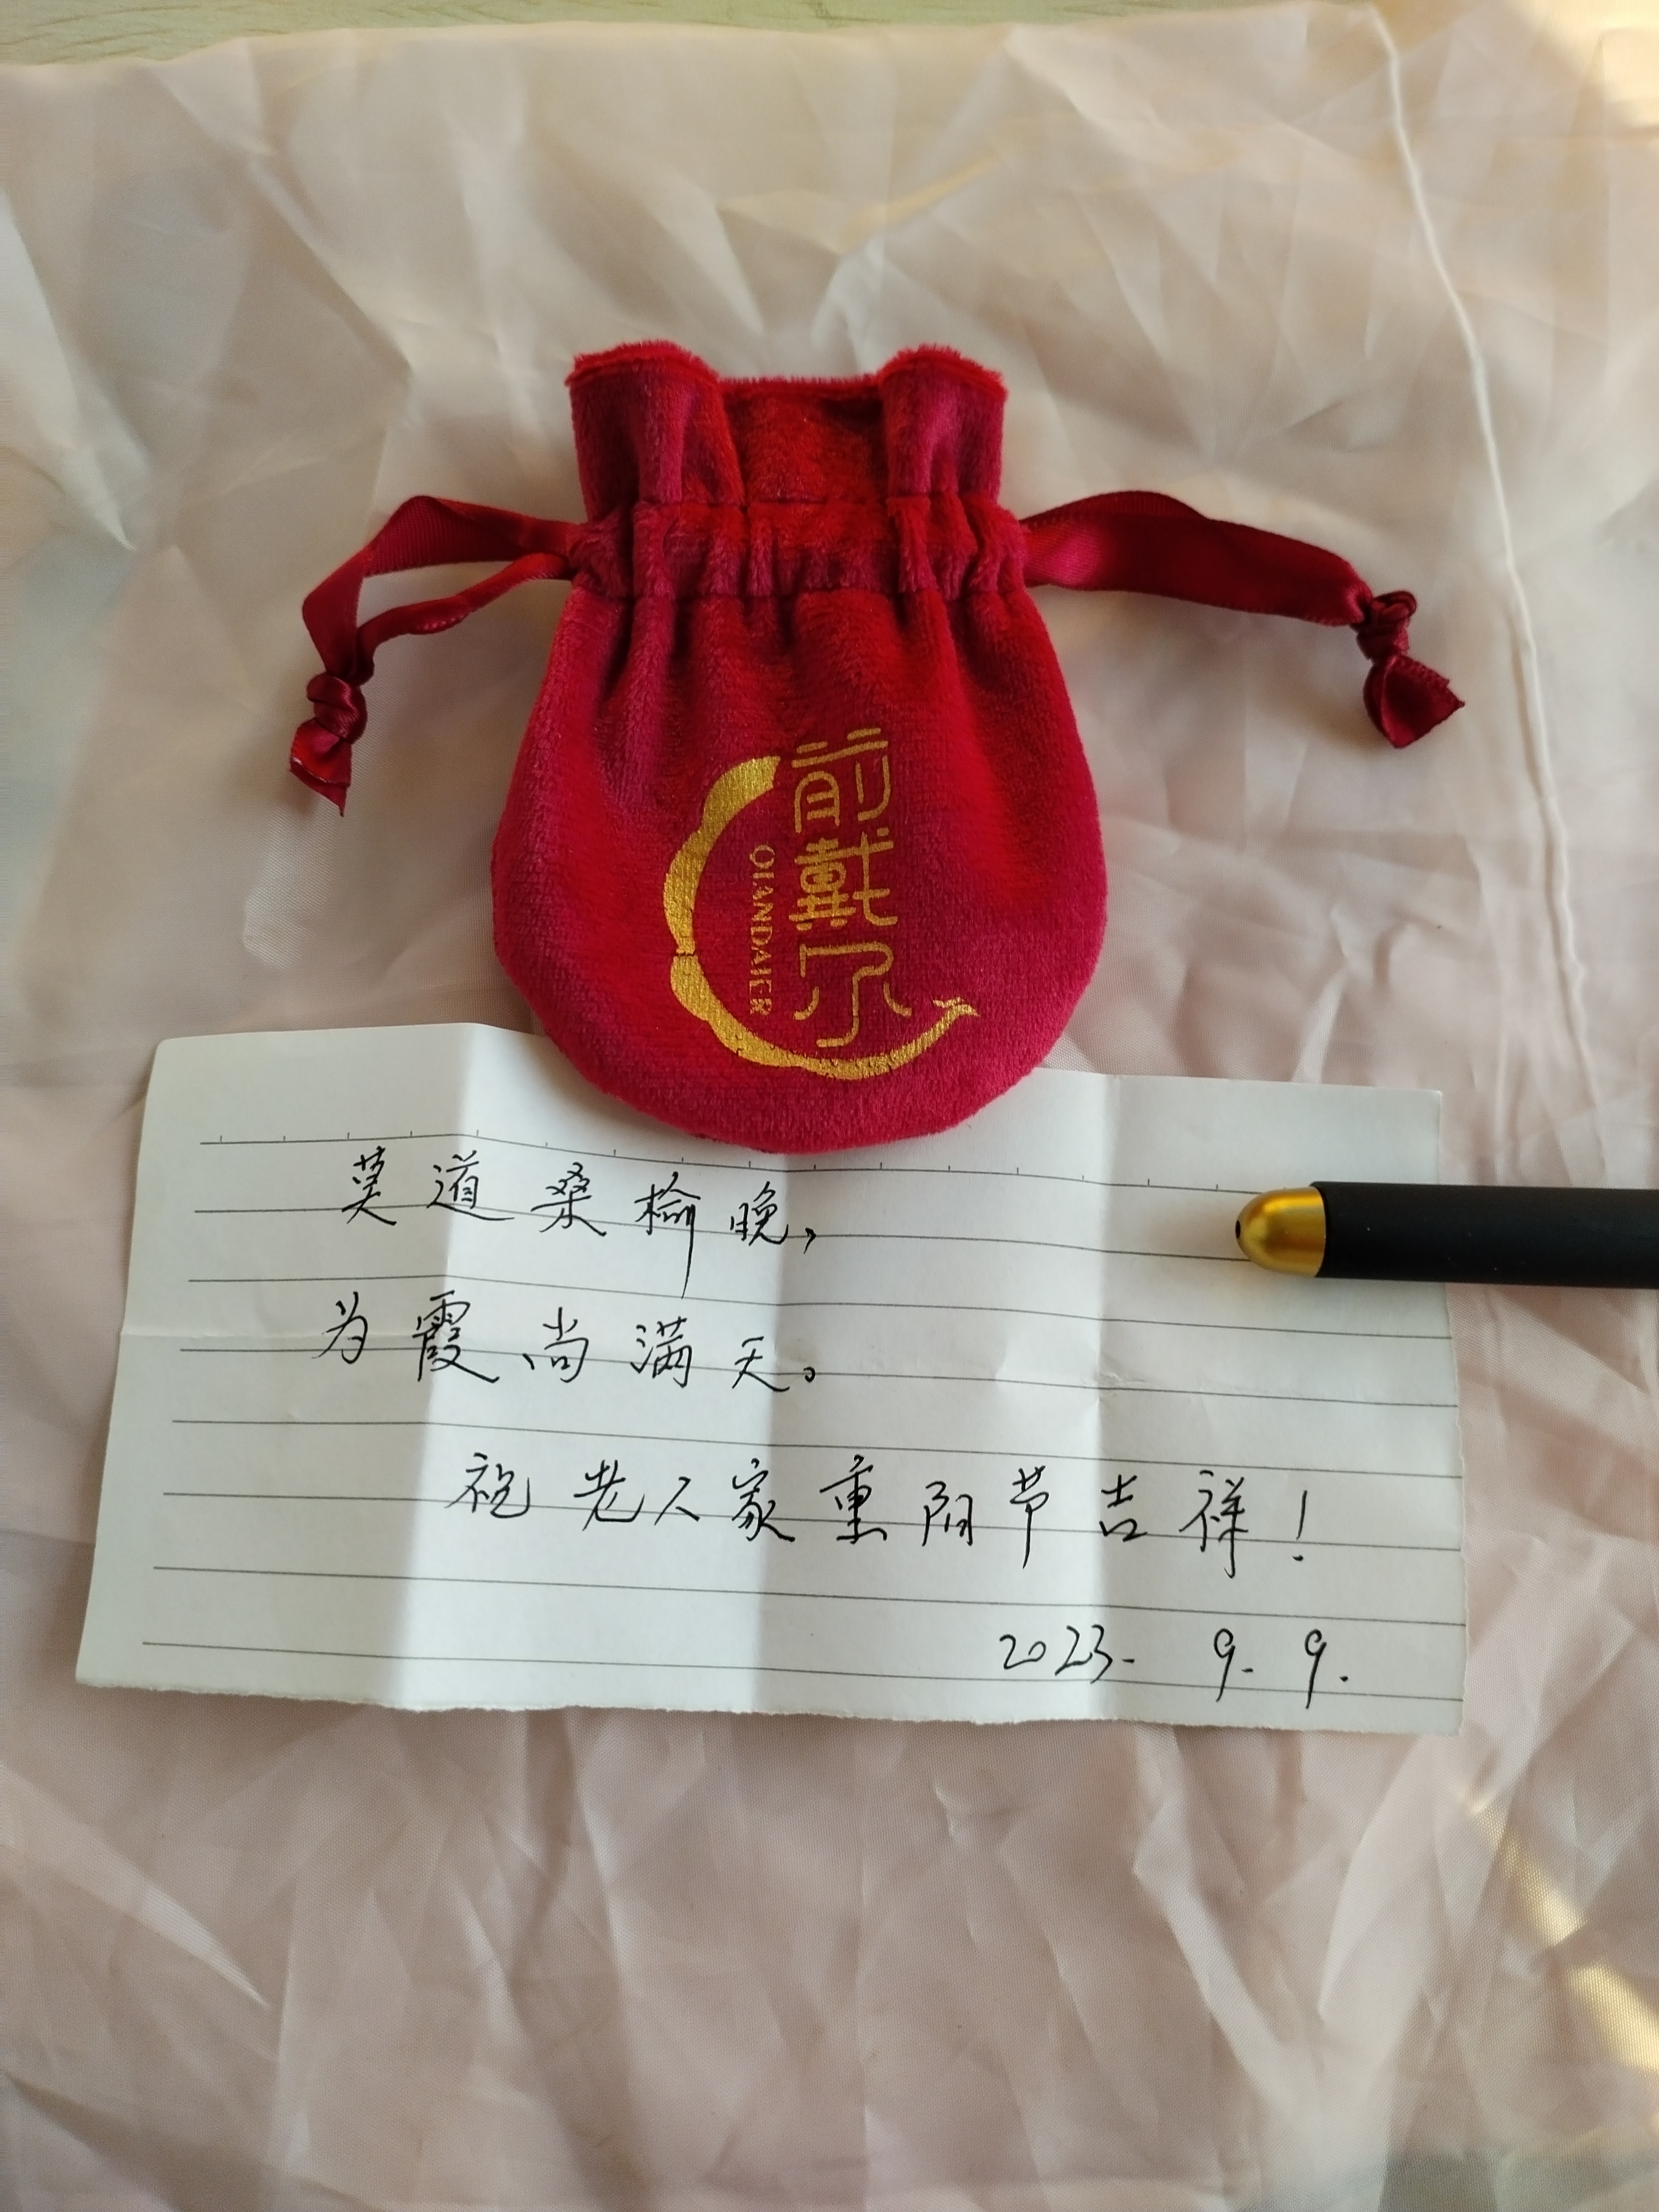 前戴尔
QIANDAIER
莫道桑榆晚，
为霞尚满天。
祝老人家重阳节吉祥！
2023. 9. 9.